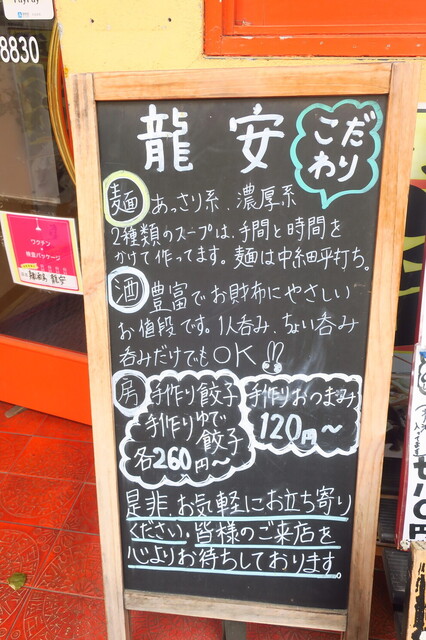 PayPay
8830
龍安
こだわり
麺 あっさり系、濃厚系
2種類のスープは、手間と時間を
かけて作ってます。麺は中細平打ち。
酒 豊富でお財布にやさしい
お値段です。1人呑み、ちょい呑み
呑みだけでもOK
房 手作り餃子
手作りゆで
餃子
各260円〜
手作りおつまみ
120円〜
是非、お気軽にお立ち寄り
ください。皆様のご来店を
心よりお待ちしております。
ワクチン・
検査パッケージ